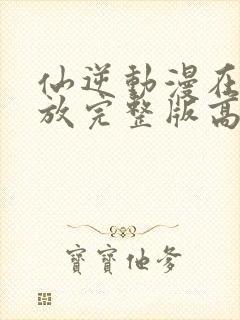 仙逆動漫在
放完整版高
寶寶他爹